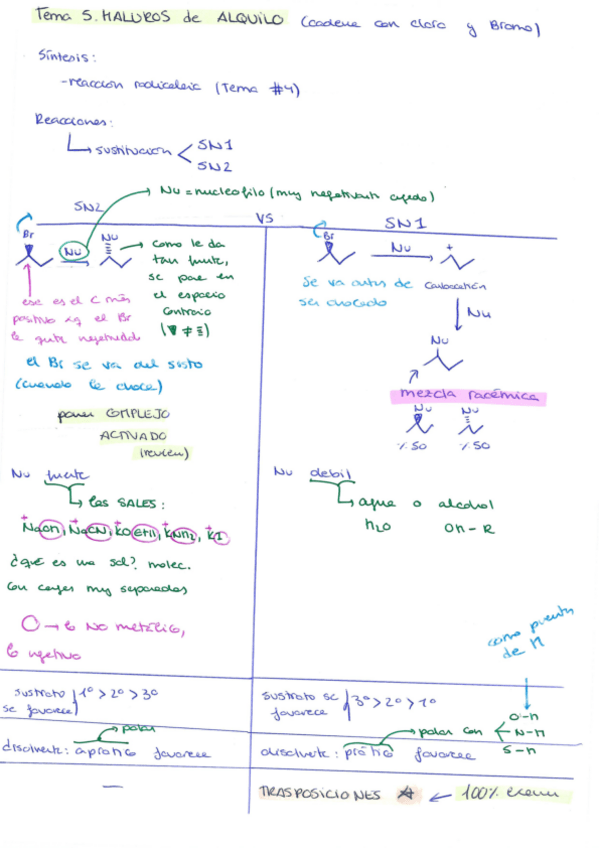 Tema 5. HALUROS de ALQUILO (cadena con cloro y Bromo)
Síntesis:
-reacción radicalaria (Tema #4)
Reacciones:
sustitución
SN1
SN2
Nu = nucleofilo (muy negativamente cargado)
SN2
VS
SN1
Br
Nu
Nu
como le da
tan fuerte,
se pone en
el espacio
contrario
ese es el C más
positivo xq el Br
le quita negatividad
el Br se va del susto
(cuando le choca)
poner COMPLEJO
ACTIVADO
(review)
Br
Nu
+
Se va antes de
ser chocado
Carbocatión
Nu
Nu
mezcla racémica
Nu
Nu
% 50
% 50
Nu fuerte
las SALES:
NaOH, NaCN, KOEtH, KNH2, KI
¿qué es una sal? molec.
con cargas muy separadas
→ lo NO metálico,
lo negativo
Nu debil
agua o alcohol
H2O
OH-R
como puentes
de H
sustrato
se favorece
1º > 2º > 3º
sustrato se
favorece
3º > 2º > 1º
O-H
N-H
S-H
polar
disolvente: aprótico favorece
polar con
disolvente: prótico favorece
—
TRASPOSICIONES
100% examen